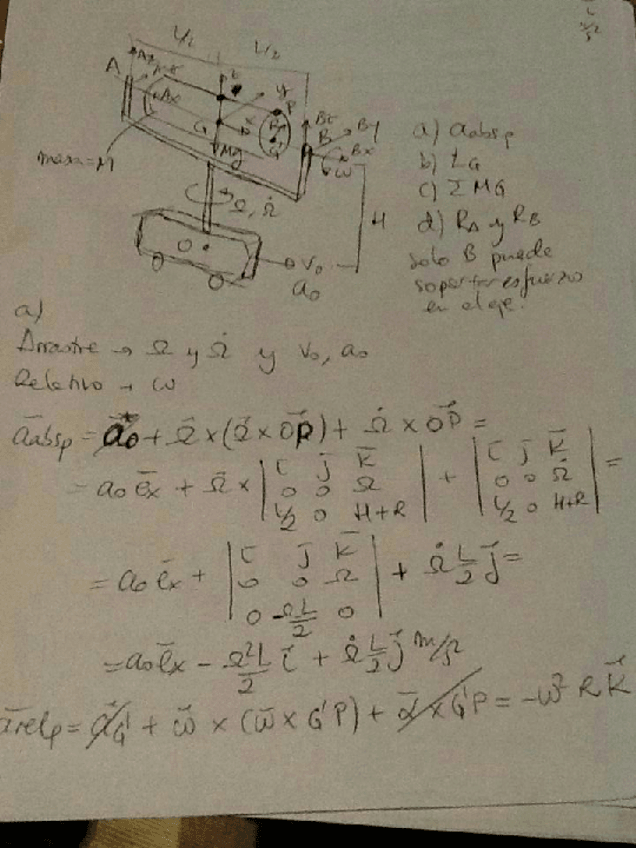 L/2
L/2
A
Az
Ax
z
y
P
x
G
R
G'
Mg
Bz
By
B
Bx
ω
masa=M
Ω, Ω̇
H
O
V₀
a₀
a) aabsp
b) LG
c) ΣMG
d) RA y RB
solo B puede
soportar esfuerzo
en el eje.
a)
Arrastre → Ω y Ω̇ y V₀, a₀
Relativo → ω
āabsp = a⃗₀ + Ω̄ × (Ω̄ × O⃗P) + Ω̇ × O⃗P =
= a₀ ēx + Ω̄ × | i j k | + | i j k | =
| 0 0 Ω | | 0 0 Ω̇ |
| L/2 0 H+R | | L/2 0 H+R |
= a₀ ēx + | i j k | + Ω̇ L/2 j =
| 0 0 Ω |
| 0 ΩL/2 0 |
= a₀ ēx - Ω²L/2 i + Ω̇ L/2 j m/s²
ārelp = a⃗G' + ω⃗ × (ω̄ × G'P) + ᾱ × G'P = -ω² R k⃗